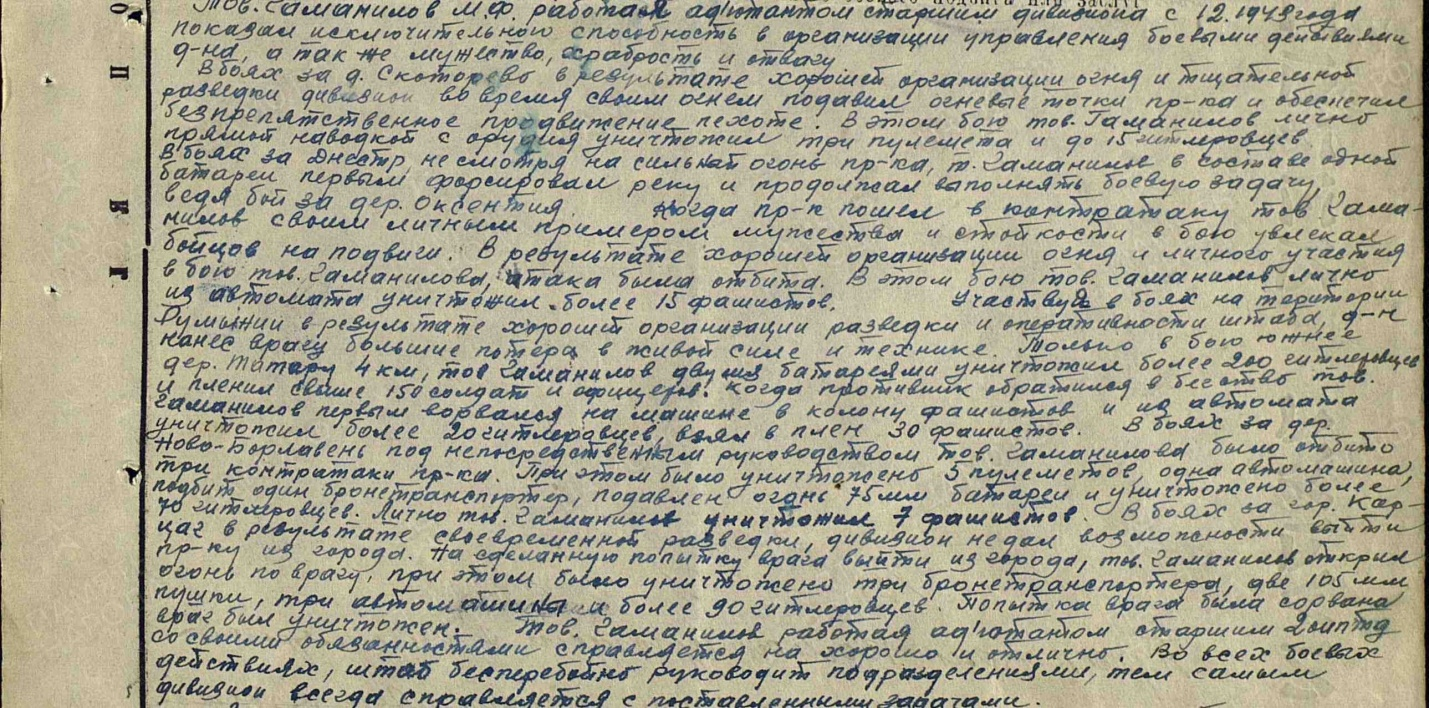 Тов. Гаманилов М.Ф. работая ад'ютантом старшим дивизиона с 12.1943 года
показал исключительную способность в организации управления боевыми действиями
д-на, а так же мужество, храбрость и отвагу
В боях за д. Скоторево в результате хорошей организации огня и тщательной
разведки дивизион во время своим огнем подавил огневые точки пр-ка и обеспечил
безпрепятственное продвижение пехоте. В этом бою тов. Гаманилов лично
прямой наводкой с орудия уничтожил три пулемета и до 15 гитлеровцев.
В боях за Днестр, несмотря на сильный огонь пр-ка, т. Гаманилов в составе одной
батареи первым форсировал реку и продолжал выполнять боевую задачу,
ведя бой за дер. Оксентия. Когда пр-к пошел в контратаку тов. Гама-
нилов своим личным примером мужества и стойкости в бою увлекал
бойцов на подвиги. В результате хорошей организации огня и личного участия
в бою тов. Гаманилова, атака была отбита. В этом бою тов. Гаманилов лично
из автомата уничтожил более 15 фашистов. Участвуя в боях на територии
Румынии в результате хорошей организации разведки и оперативности штаба, д-н
нанес врагу большие потери в живой силе и технике. Только в бою южнее
дер. Татару 4 км, тов Гаманилов двумя батареями уничтожил более 200 гитлеровцев
и пленил свыше 150 солдат и офицеров. Когда противник обратился в бегство тов.
Гаманилов первым ворвался на машине в колону фашистов и из автомата
уничтожил более 20 гитлеровцев, взял в плен 30 фашистов. В боях за дер.
Ново-Борлавень под непосредственным руководством тов. Гаманилова было отбито
три контратаки пр-ка. При этом было уничтожено 5 пулеметов, одна автомашина,
подбит один бронетранспортер, подавлен огонь 75 мм батареи и уничтожено более
70 гитлеровцев. Лично тов. Гаманилов уничтожил 7 фашистов. В боях за гор. Кар-
цаг в результате своевременной разведки, дивизион не дал возможности выйти
пр-ку из города. На сделанную попытку врага выйти из города, тов. Гаманилов открыл
огонь по врагу, при этом было уничтожено три бронетранспортера, две 105 мм
пушки, три автомашины и более 90 гитлеровцев. Попытка врага была сорвана
враг был уничтожен. Тов. Гаманилов работая ад'ютантом старшим 2 оиптд
со своими обязанностями справляется на хорошо и отлично. Во всех боевых
действиях, штаб бесперебойно руководит подразделениями, тем самым
дивизион всегда справляется с поставленными задачами.
О
П
В
Г